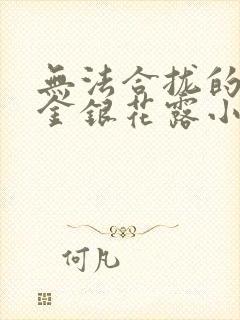 無法合拢的
金銀花露小
何凡